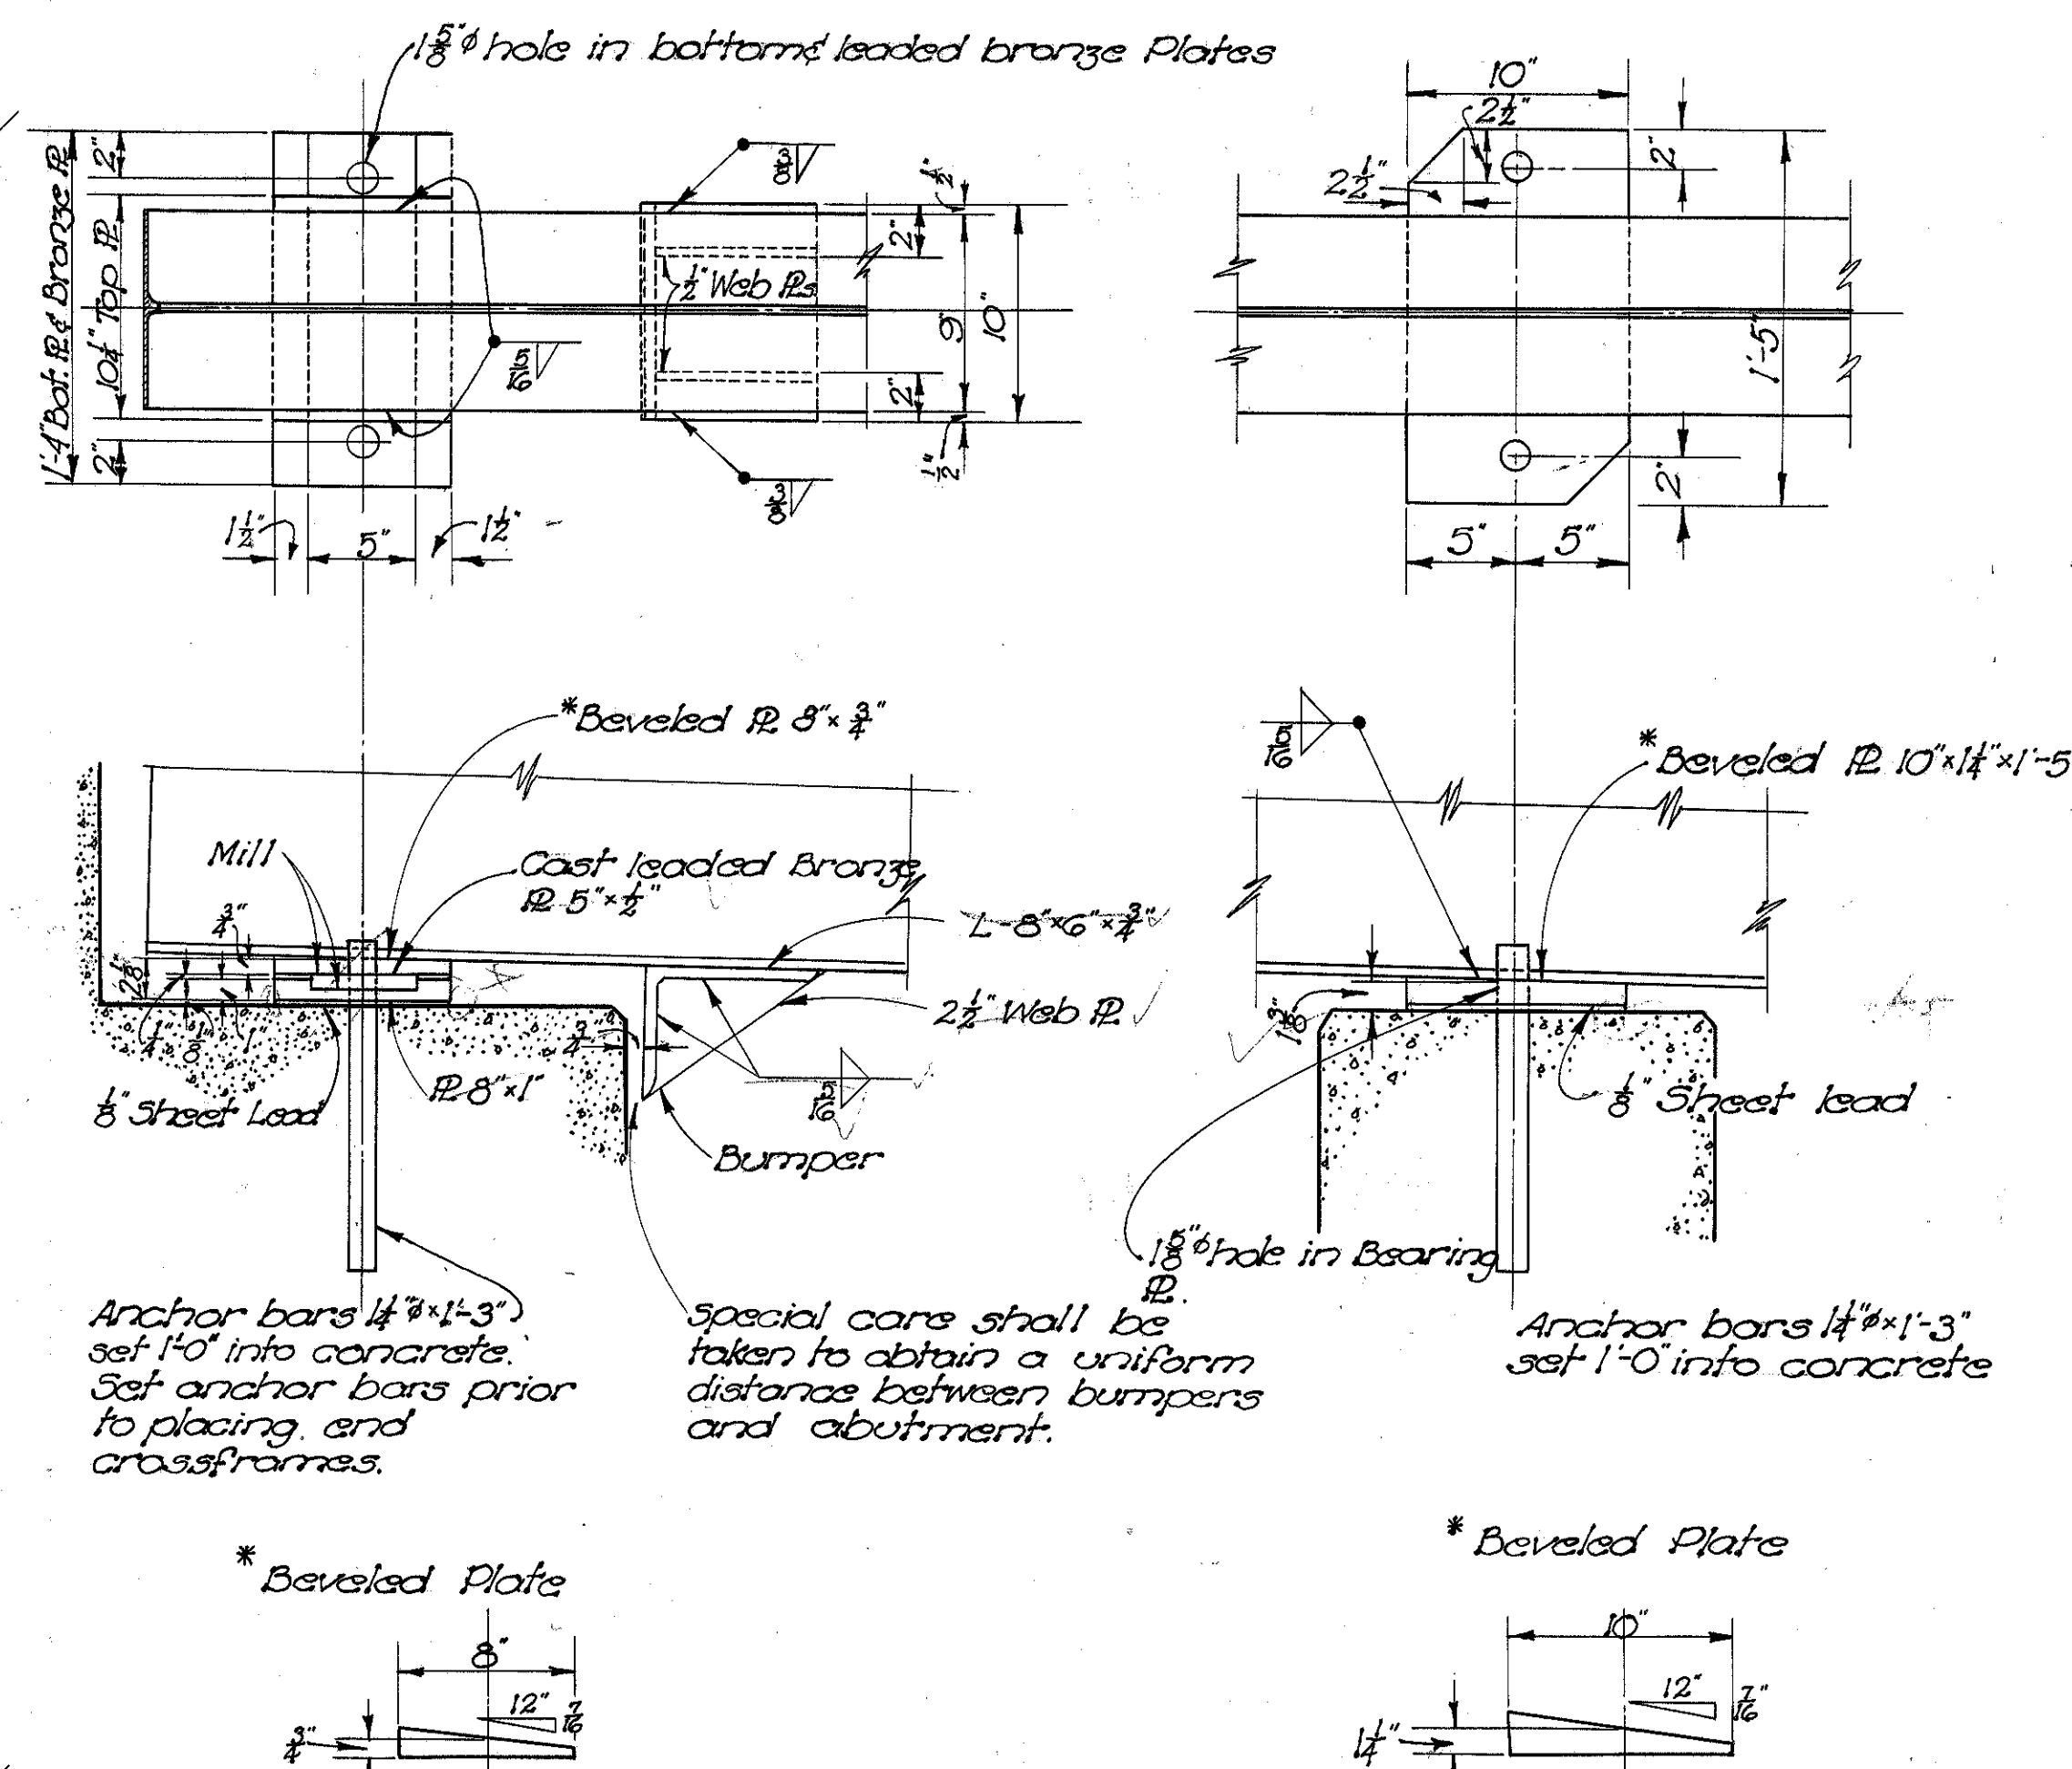 1 5/8" φ hole in bottom & leaded bronze Plates
1'-4" Bot. PL & Bronze PL
2"
10 1/4" Top PL
2"
3/8
1/2"
2"
1/2" Web PLs
5/16
9"
10"
2"
1/2"
3/8
1 1/2"
5"
1 1/2"
10"
2 1/2"
2 1/2"
2"
1'-5"
2"
5"
5"
*Beveled PL 8" x 3/4"
Mill
Cast leaded Bronze
PL 5" x 1/2"
L-8"x6"x3/4"
3/4"
2 1/8"
1/4"
1/8"
1"
3/4"
2 1/2" Web PL
1/8" Sheet Lead
PL 8"x1"
5/16
Bumper
Anchor bars 1 1/4" φ x 1'-3"
set 1'-0" into concrete.
Set anchor bars prior
to placing end
crossframes.
Special care shall be
taken to obtain a uniform
distance between bumpers
and abutment.
5/16
*Beveled PL 10" x 1 1/4" x 1'-5
1 3/8"
1/8" Sheet lead
1 5/8" φ hole in Bearing
PL.
Anchor bars 1 1/4" φ x 1'-3"
set 1'-0" into concrete
*Beveled Plate
8"
12"
7/16"
3/4"
*Beveled Plate
10"
12"
7/16"
1 1/4"